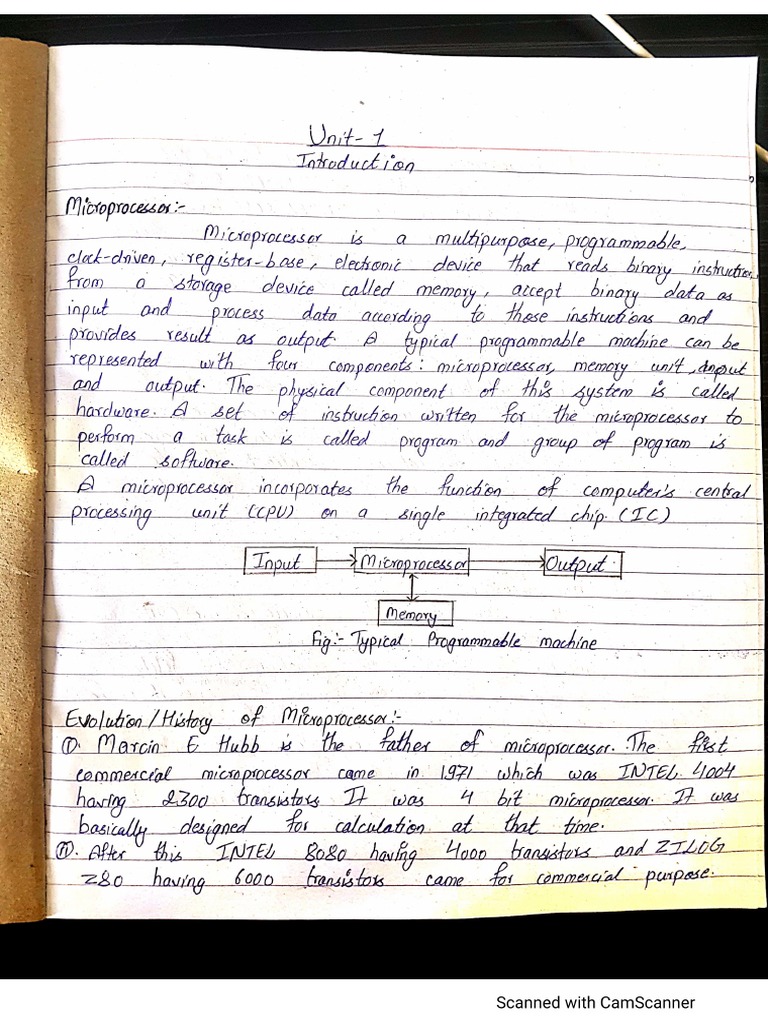 Unit-1
Introduction
Microprocessor:-
Microprocessor is a multipurpose, programmable,
clock-driven, register-base, electronic device that reads binary instruction
from a storage device called memory, accept binary data as
input and process data according to those instructions and
provides result as output. A typical programmable machine can be
represented with four components: microprocessor, memory unit, input
and output. The physical component of this system is called
hardware. A set of instruction written for the microprocessor to
perform a task is called program and group of program is
called software.
A microprocessor incorporates the function of computer's central
processing unit (CPU) on a single integrated chip. (IC)
Input Microprocessor Output
Memory
Fig:- Typical Programmable machine
Evolution/History of Microprocessor:-
(i). Marcin E Hubb is the father of microprocessor. The first
commercial microprocessor came in 1971 which was INTEL 4004
having 2300 transistors It was 4 bit microprocessor. It was
basically designed for calculation at that time.
(ii). After this INTEL 8080 having 4000 transistors and ZILOG
Z80 having 6000 transistors came for commercial purpose.
Scanned with CamScanner